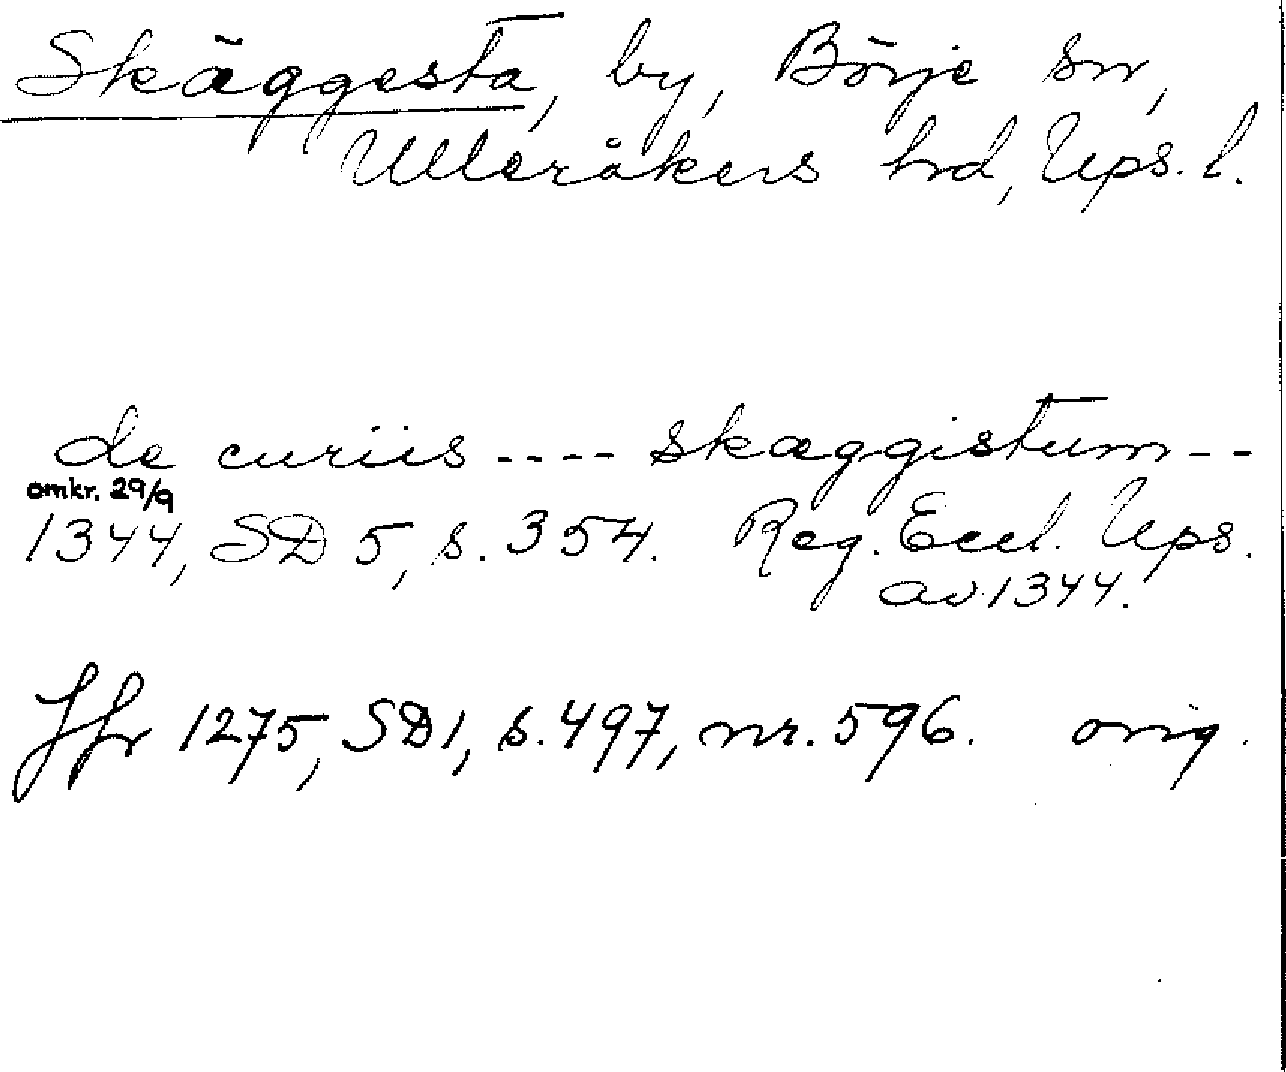 Skäggesta, by, Börje sn,
Ulleråkers hrd, Ups. l.
de curiis ---- skæggistum --
omkr. 29/9
1344, SD 5, s. 354. Reg. Eccl. Ups.
av 1344.
Jfr 1275, SD 1, s. 497, nr. 596. orig.